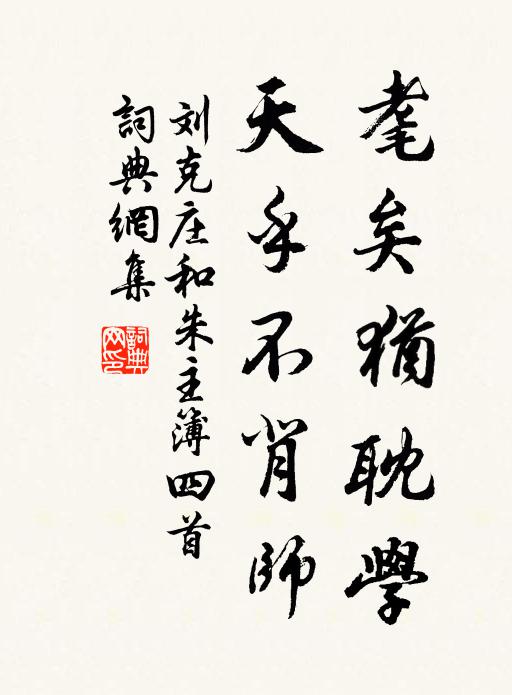 耄矣猶耽學
天乎不肖師
刘克庄和朱主簿四首
詞典網集
詞典網印